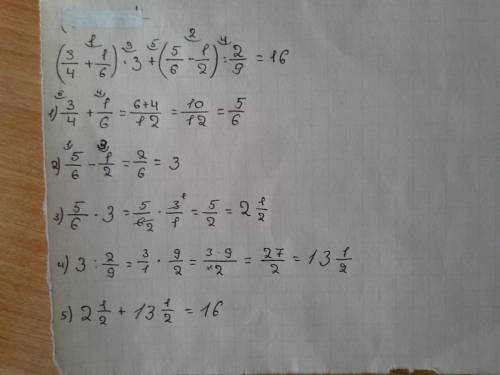 1 3 5 2 4
(3/4 + 1/6) · 3 + (5/6 - 1/2) : 2/9 = 16
1) 3/4 + 1/6 = 6+4/12 = 10/12 = 5/6
2) 5/6 - 1/2 = 2/6 = 3
3) 5/6 · 3 = 5/6 2 · 3 1/1 = 5/2 = 2 1/2
4) 3 : 2/9 = 3/1 · 9/2 = 3·9/2 = 27/2 = 13 1/2
5) 2 1/2 + 13 1/2 = 16